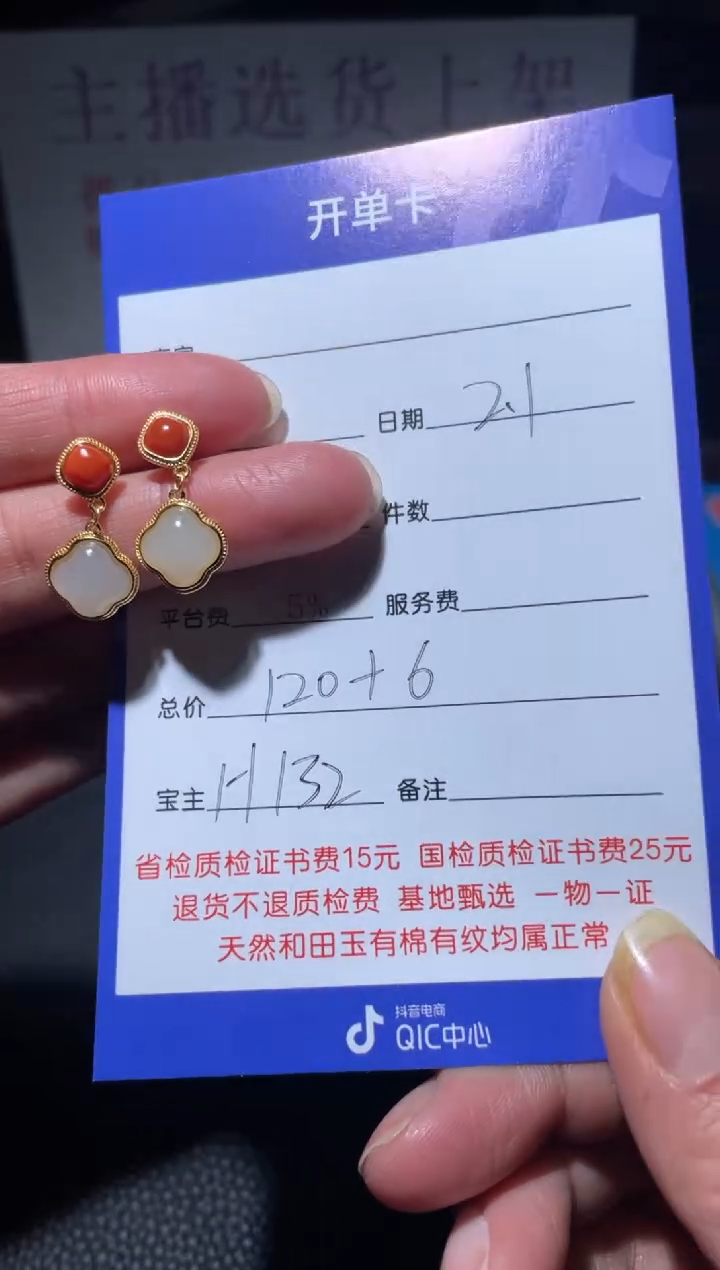 主播选货上架
开单卡
日期 2.1
件数
平台费 5% 服务费
总价 120+6
宝主 H132 备注
省检质检证书费15元 国检质检证书费25元
退货不退质检费 基地甄选 一物一证
天然和田玉有棉有纹均属正常
抖音电商
QIC中心